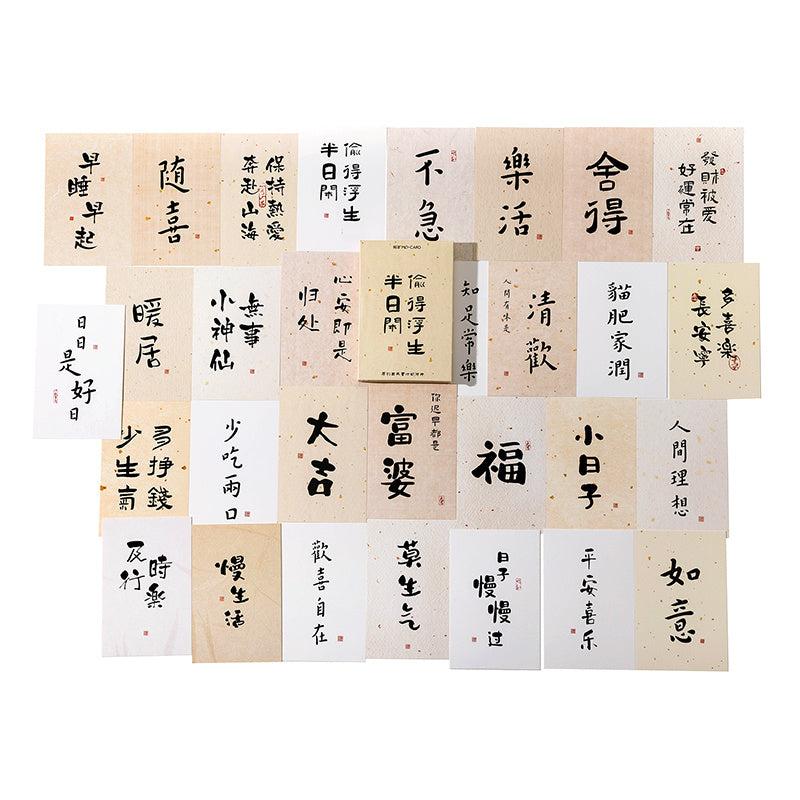 早睡
早起
随喜
保持熱愛
奔赴山海
偷得浮生
半日閑
不急
樂活
舍得
發財被愛
好運常在
日日是
好日
暖居
無事
小神仙
心安即是
归处
偷得浮生
半日閑
知足常樂
人間有味是
清歡
貓肥家潤
多喜樂
長安寧
多掙錢
少生氣
少吃兩口
大吉
你迟早都是
富婆
福
小日子
人間理想
及行
時樂
慢生活
歡喜自在
莫生气
日子
慢慢过
平安喜乐
如意